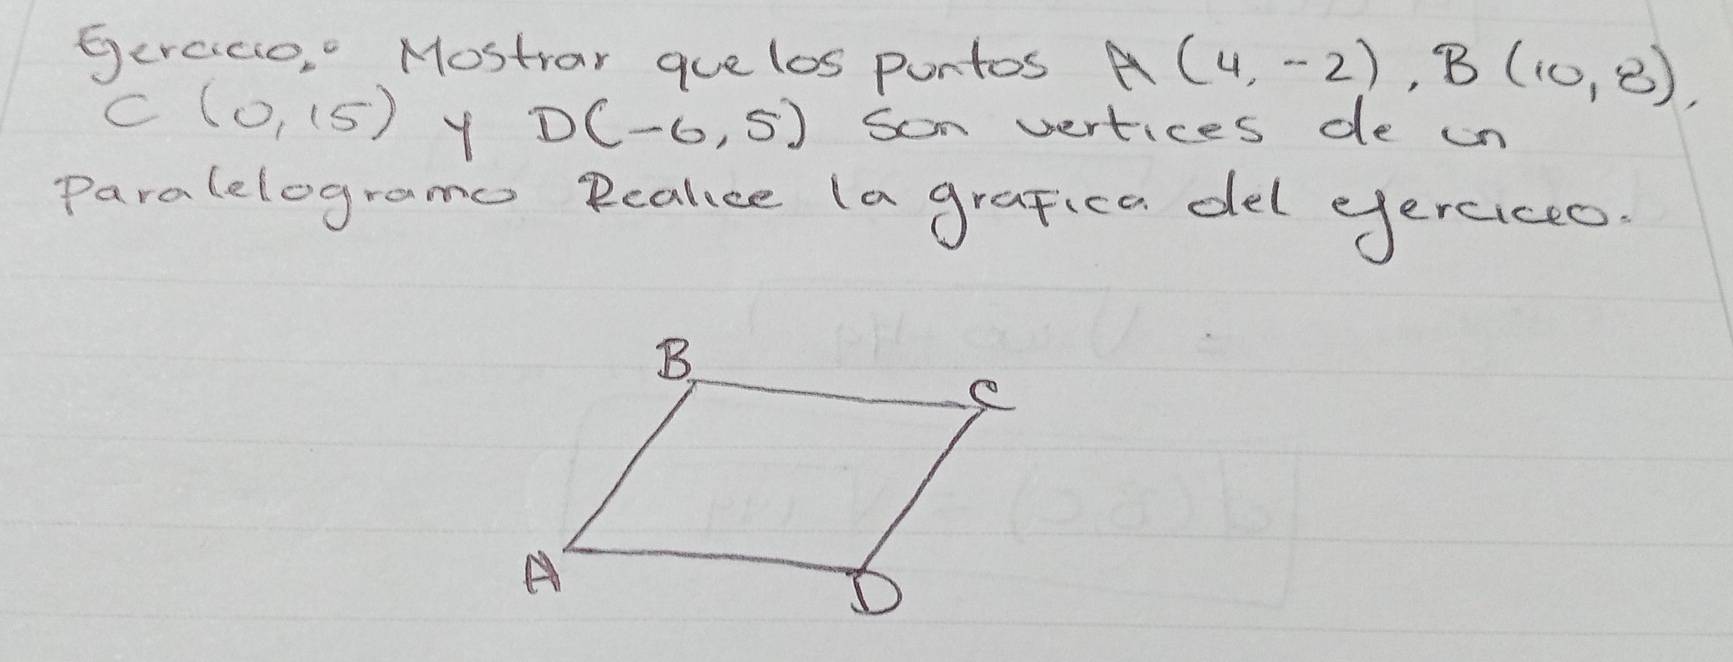 Ejercicio: Mostrar que los puntos A (4, -2), B (10, 8),
C (0, 15) y D(-6, 5) son vertices de un
Paralelogramo Realice la grafica del ejercicio.
B
C
A
D